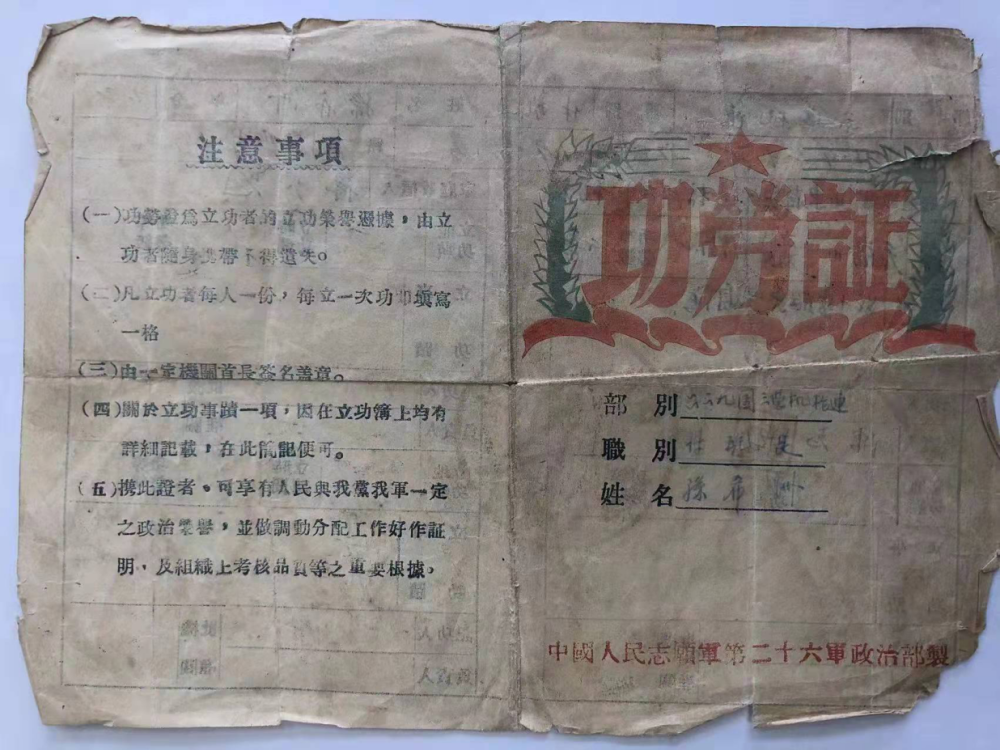 注意事項
(一)功勞證爲立功者的立功榮譽憑據,由立
功者隨身携帶不得遺失。
(二)凡立功者每人一份,每立一次功即填寫
一格
(三)由一定機關首長签名盖章。
(四)關於立功事蹟一項,因在立功簿上均有
詳細記載,在此簡記便可。
(五)携此證者。可享有人民與我黨我軍一定
之政治榮譽,並做調動分配工作好作証
明,及組織上考核品質等之重要根據。
功劳証
部别
職别
姓名 孫希
中國人民志願軍第二十六軍政治部製